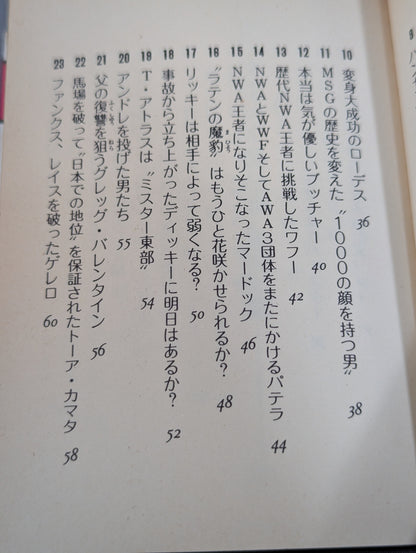 10 変身大成功のローデス 36
11 MSGの歴史を変えた〝1000の顔を持つ男〟 38
12 本当は気が優しいブッチャー 40
13 歴代NWA王者に挑戦したワフー 42
14 NWAとWWFそしてAWA3団体をまたにかけるパテラ 44
15 NWA王者になりそこなったマードック 46
16 〝ラテンの魔豹〟はもうひと花咲かせられるか? 48
まひょう
17 リッキーは相手によって弱くなる? 50
18 事故から立ち上がったディッキーに明日はあるか? 52
19 T・アトラスは〝ミスター東部〟 54
20 アンドレを投げた男たち 55
21 父の復讐を狙うグレッグ・バレンタイン 56
22 馬場を破って〝日本での地位〟を保証されたトーア・カマタ 58
23 ファンクス、レイスを破ったゲレロ 60